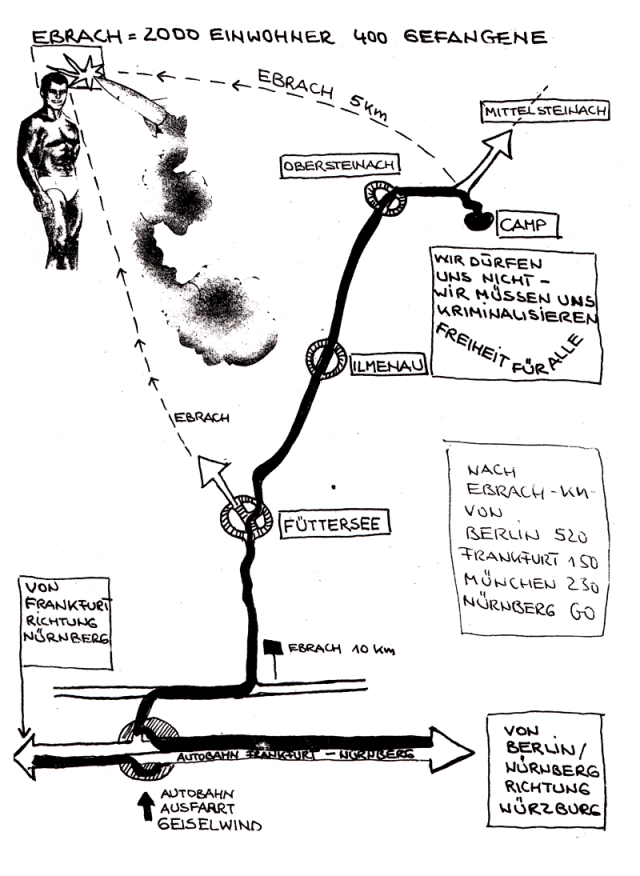 EBRACH = 2000 EINWOHNER 400 GEFANGENE
EBRACH 5 Km
MITTELSTEINACH
OBERSTEINACH
CAMP
WIR DÜRFEN
UNS NICHT -
WIR MÜSSEN UNS
KRIMINALISIEREN
FREIHEIT FÜR ALLE
ILMENAU
EBRACH
FÜTTERSEE
NACH
EBRACH-KM-
VON
BERLIN 520
FRANKFURT 150
MÜNCHEN 230
NÜRNBERG 60
VON
FRANKFURT
RICHTUNG
NÜRNBERG
EBRACH 10 Km
AUTOBAHN FRANKFURT - NÜRNBERG
VON
BERLIN/
NÜRNBERG
RICHTUNG
WÜRZBURG
AUTOBAHN
AUSFAHRT
GEISELWIND